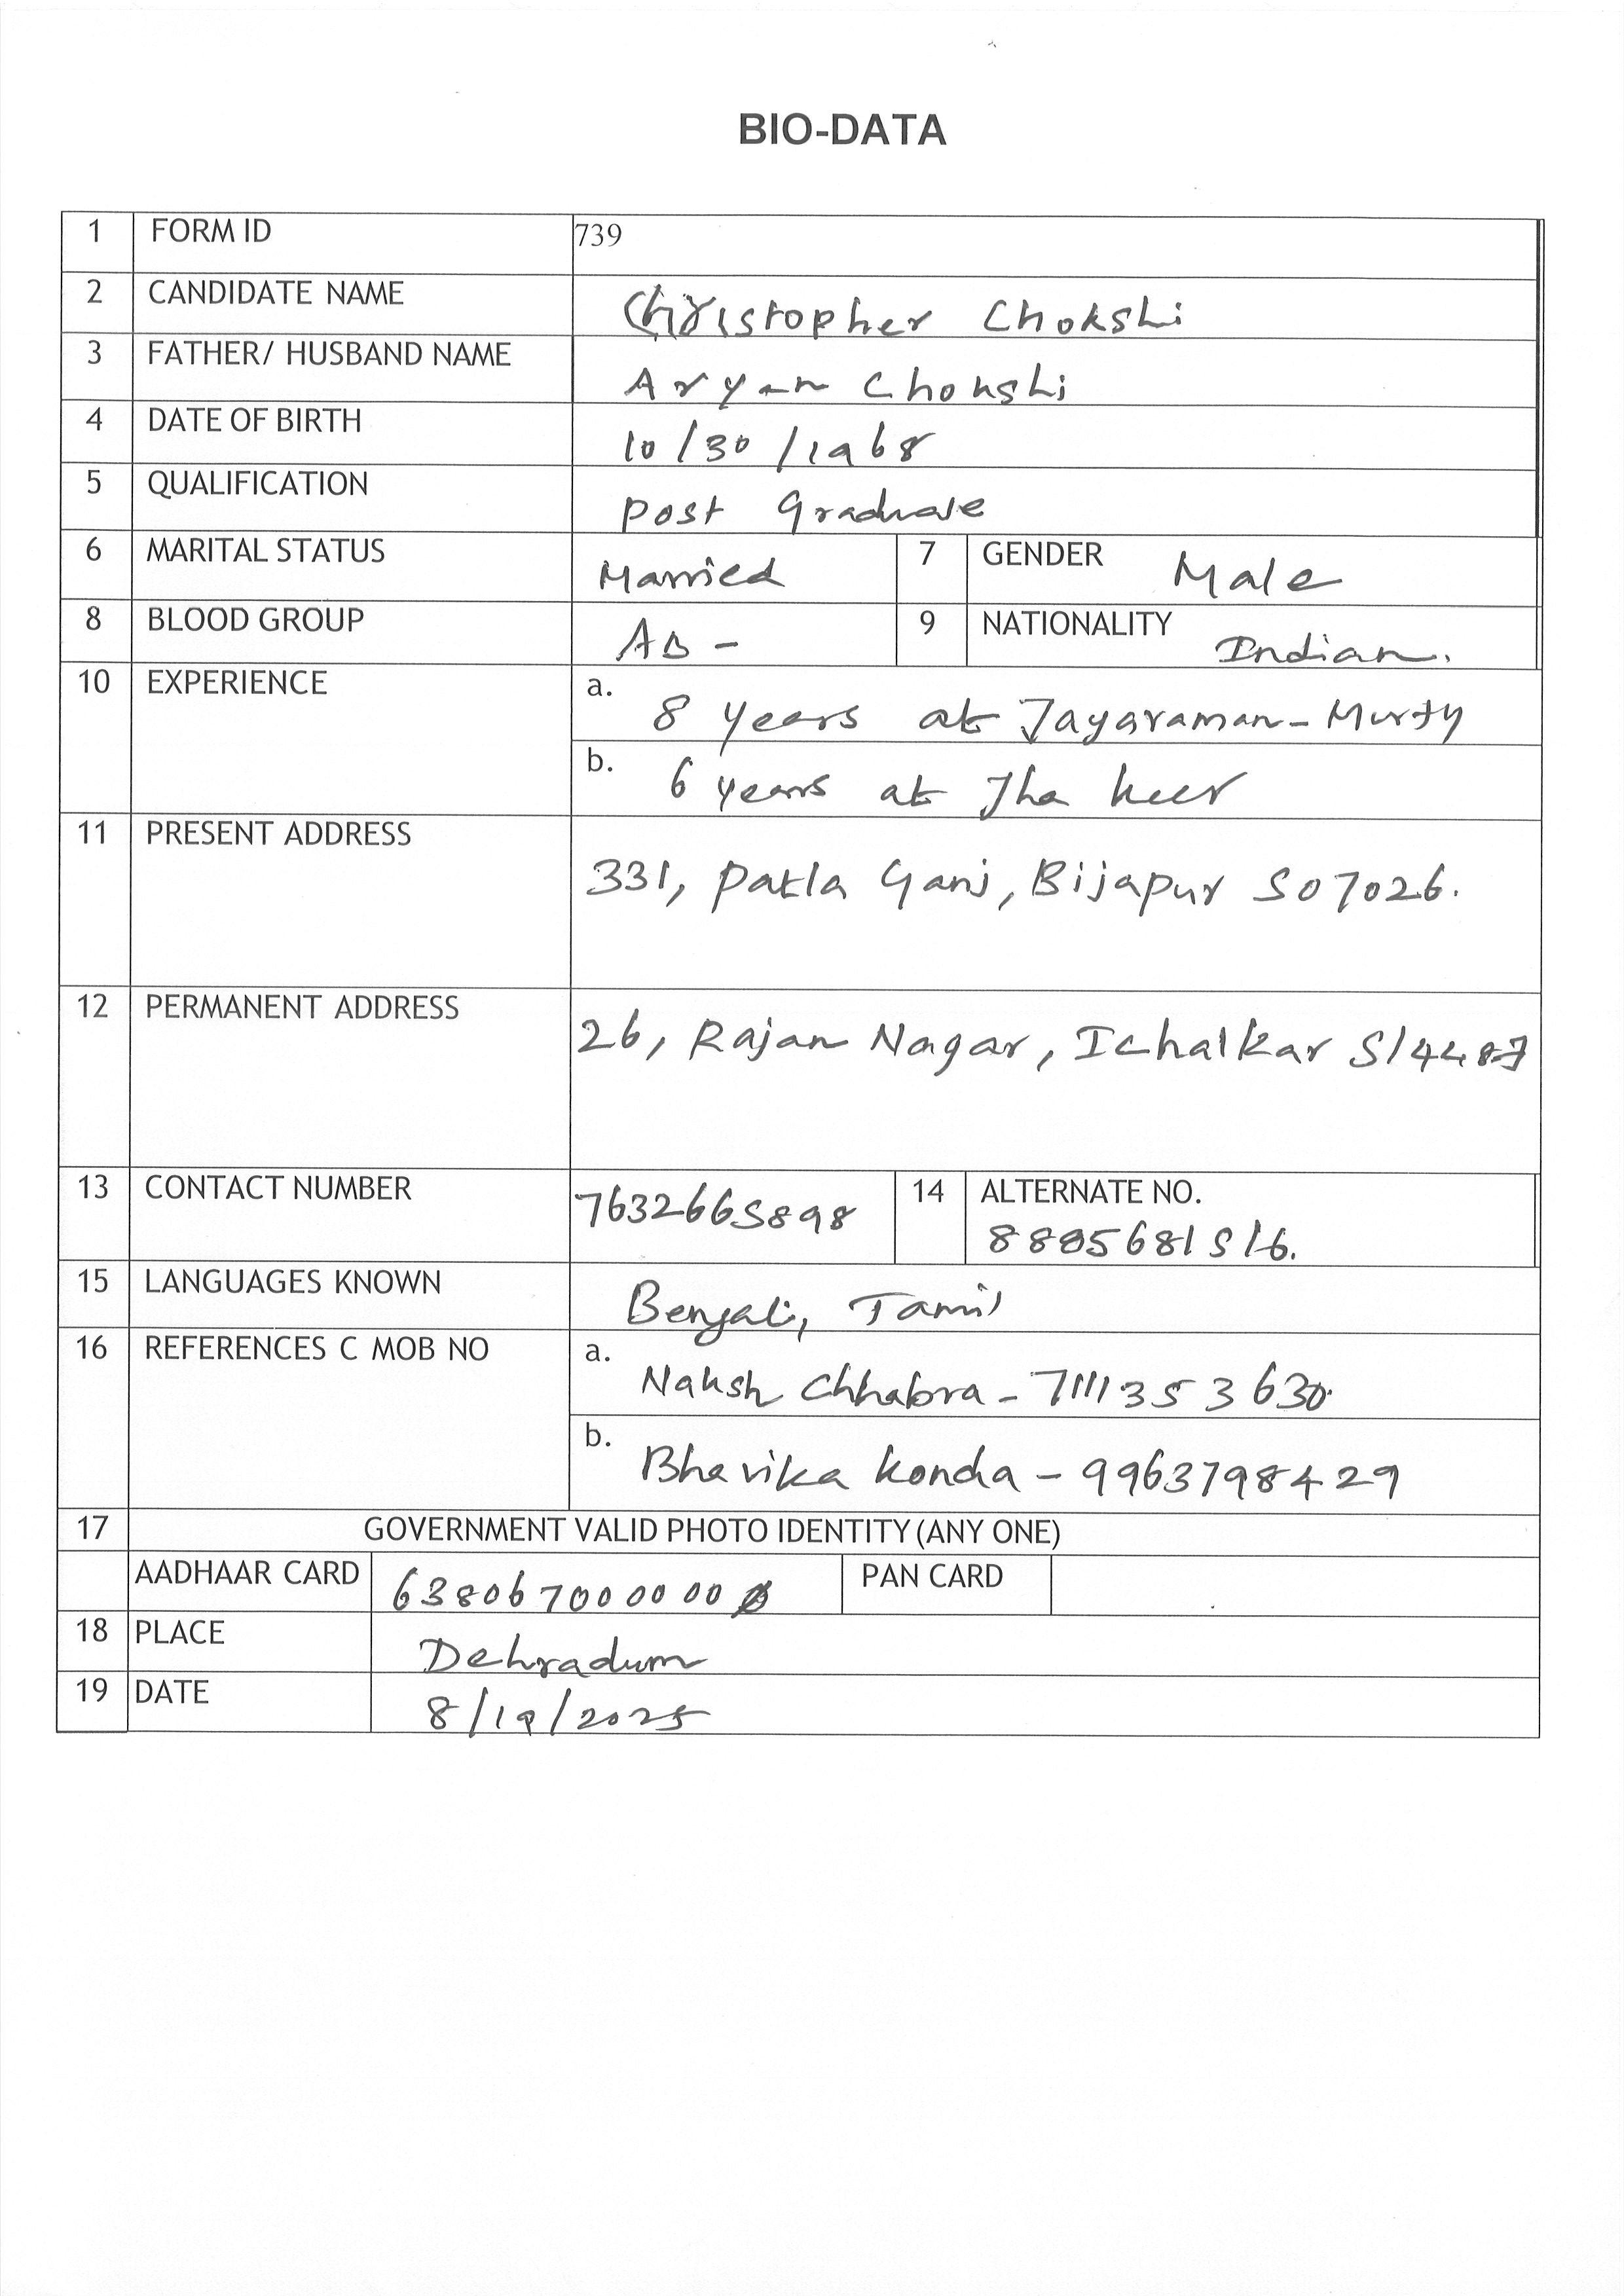 BIO-DATA
1 FORM ID 739
2 CANDIDATE NAME Christopher Chokshi
3 FATHER/ HUSBAND NAME Aryan Chokshi
4 DATE OF BIRTH 10/30/1968
5 QUALIFICATION Post Graduate
6 MARITAL STATUS Married 7 GENDER Male
8 BLOOD GROUP AB - 9 NATIONALITY Indian.
10 EXPERIENCE a. 8 years at Jayaraman-Murty
b. 6 years at Jha keer
11 PRESENT ADDRESS
331, Patla Ganj, Bijapur 507026.
12 PERMANENT ADDRESS
26, Rajan Nagar, Ichalkar
13 CONTACT NUMBER 7632665898 14 ALTERNATE NO.
8805681516.
15 LANGUAGES KNOWN Bengali, Tamil
16 REFERENCES C MOB NO a. Naksh Chhabra - 7111353630
b. Bhavika Konda - 9963798429
17 GOVERNMENT VALID PHOTO IDENTITY (ANY ONE)
AADHAAR CARD 63806700000 PAN CARD
18 PLACE Dehradum
19 DATE 8/19/2025